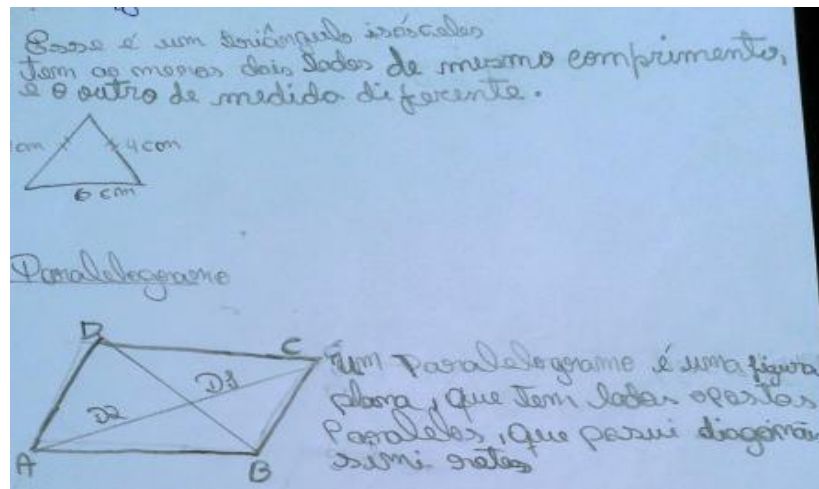 Esse é um triângulo isósceles
Tem ao menos dois lados de mesmo comprimento,
e o outro de medida diferente.
cm
4 cm
6 cm
Paralelogramo
D
C
D1
D2
A
B
um Paralelogramo é uma figura
plana, que tem lados opostos
Paralelos, que possui
simi retas